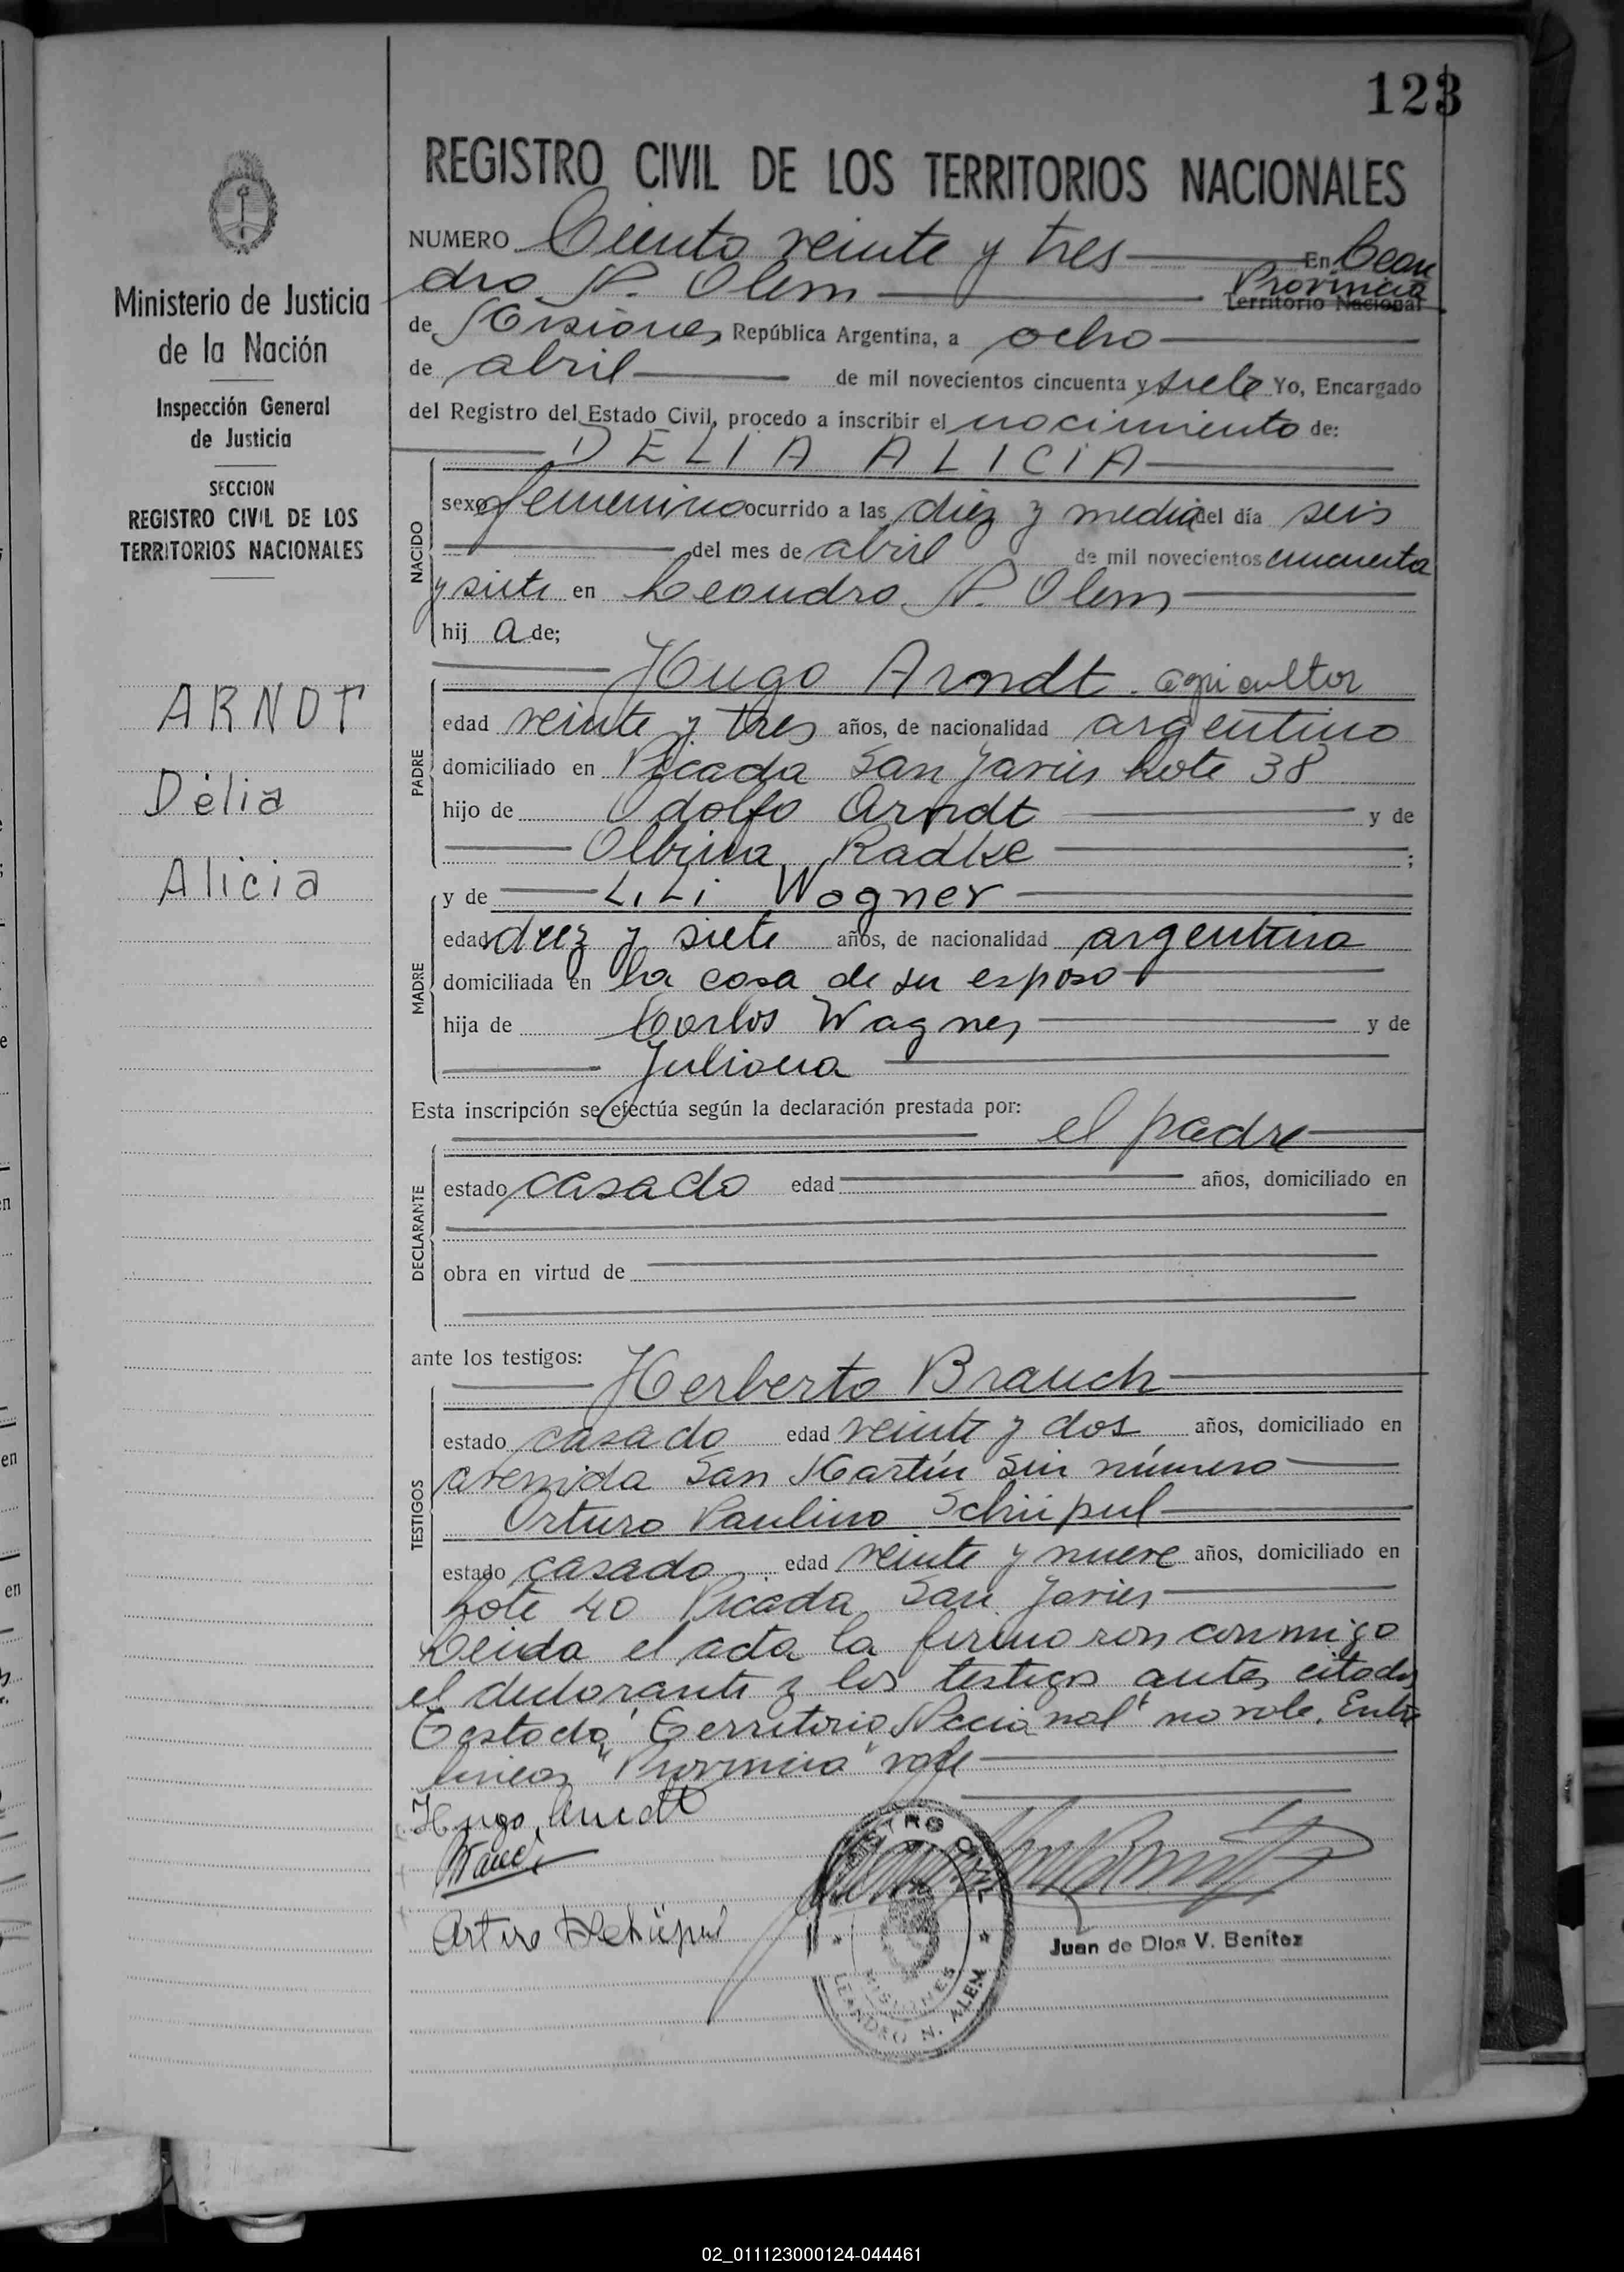 123
REGISTRO CIVIL DE LOS TERRITORIOS NACIONALES
NUMERO Ciento veinte y tres En Lean
dro N. Alem Provincia
Territorio Nacional
de Misiones República Argentina, a ocho
de abril de mil novecientos cincuenta y siete Yo, Encargado
del Registro del Estado Civil, procedo a inscribir el nacimiento de:
DELIA ALICIA
NACIDO
sexo femenino ocurrido a las diez y media del día seis
del mes de abril de mil novecientos cincuenta
y siete en Leandro N. Alem
hij a de;
Hugo Arndt agricultor
PADRE
edad veinte y tres años, de nacionalidad argentino
domiciliado en Picada San Javier Lote 38
hijo de Adolfo Arndt y de
Albina Radtke ;
y de LiLi Wagner
MADRE
edad diez y siete años, de nacionalidad argentina
domiciliada en la casa de su esposo
hija de Carlos Wagner y de
Juliana
Esta inscripción se efectúa según la declaración prestada por:
el padre
DECLARANTE
estado casado edad años, domiciliado en
obra en virtud de
ante los testigos:
Herberto Brauch
TESTIGOS
estado casado edad veinte y dos años, domiciliado en
avenida San Martín sin número
Arturo Paulino Schüpul
estado casado edad veinte y nueve años, domiciliado en
Lote 40 Picada San Javier
Leida el acta la firmaron conmigo
el declarante y los testigos antes citados
Testado "Territorio Nacional" no vale. Entre
lineas "Provincia" vale
Hugo Arndt
Arturo
REGISTRO CIVIL
MISIONES
LEANDRO N. ALEM
Juan de Dios V. Benítez
Ministerio de Justicia
de la Nación
Inspección General
de Justicia
SECCION
REGISTRO CIVIL DE LOS
TERRITORIOS NACIONALES
ARNDT
Délia
Alicia
02_011123000124-044461